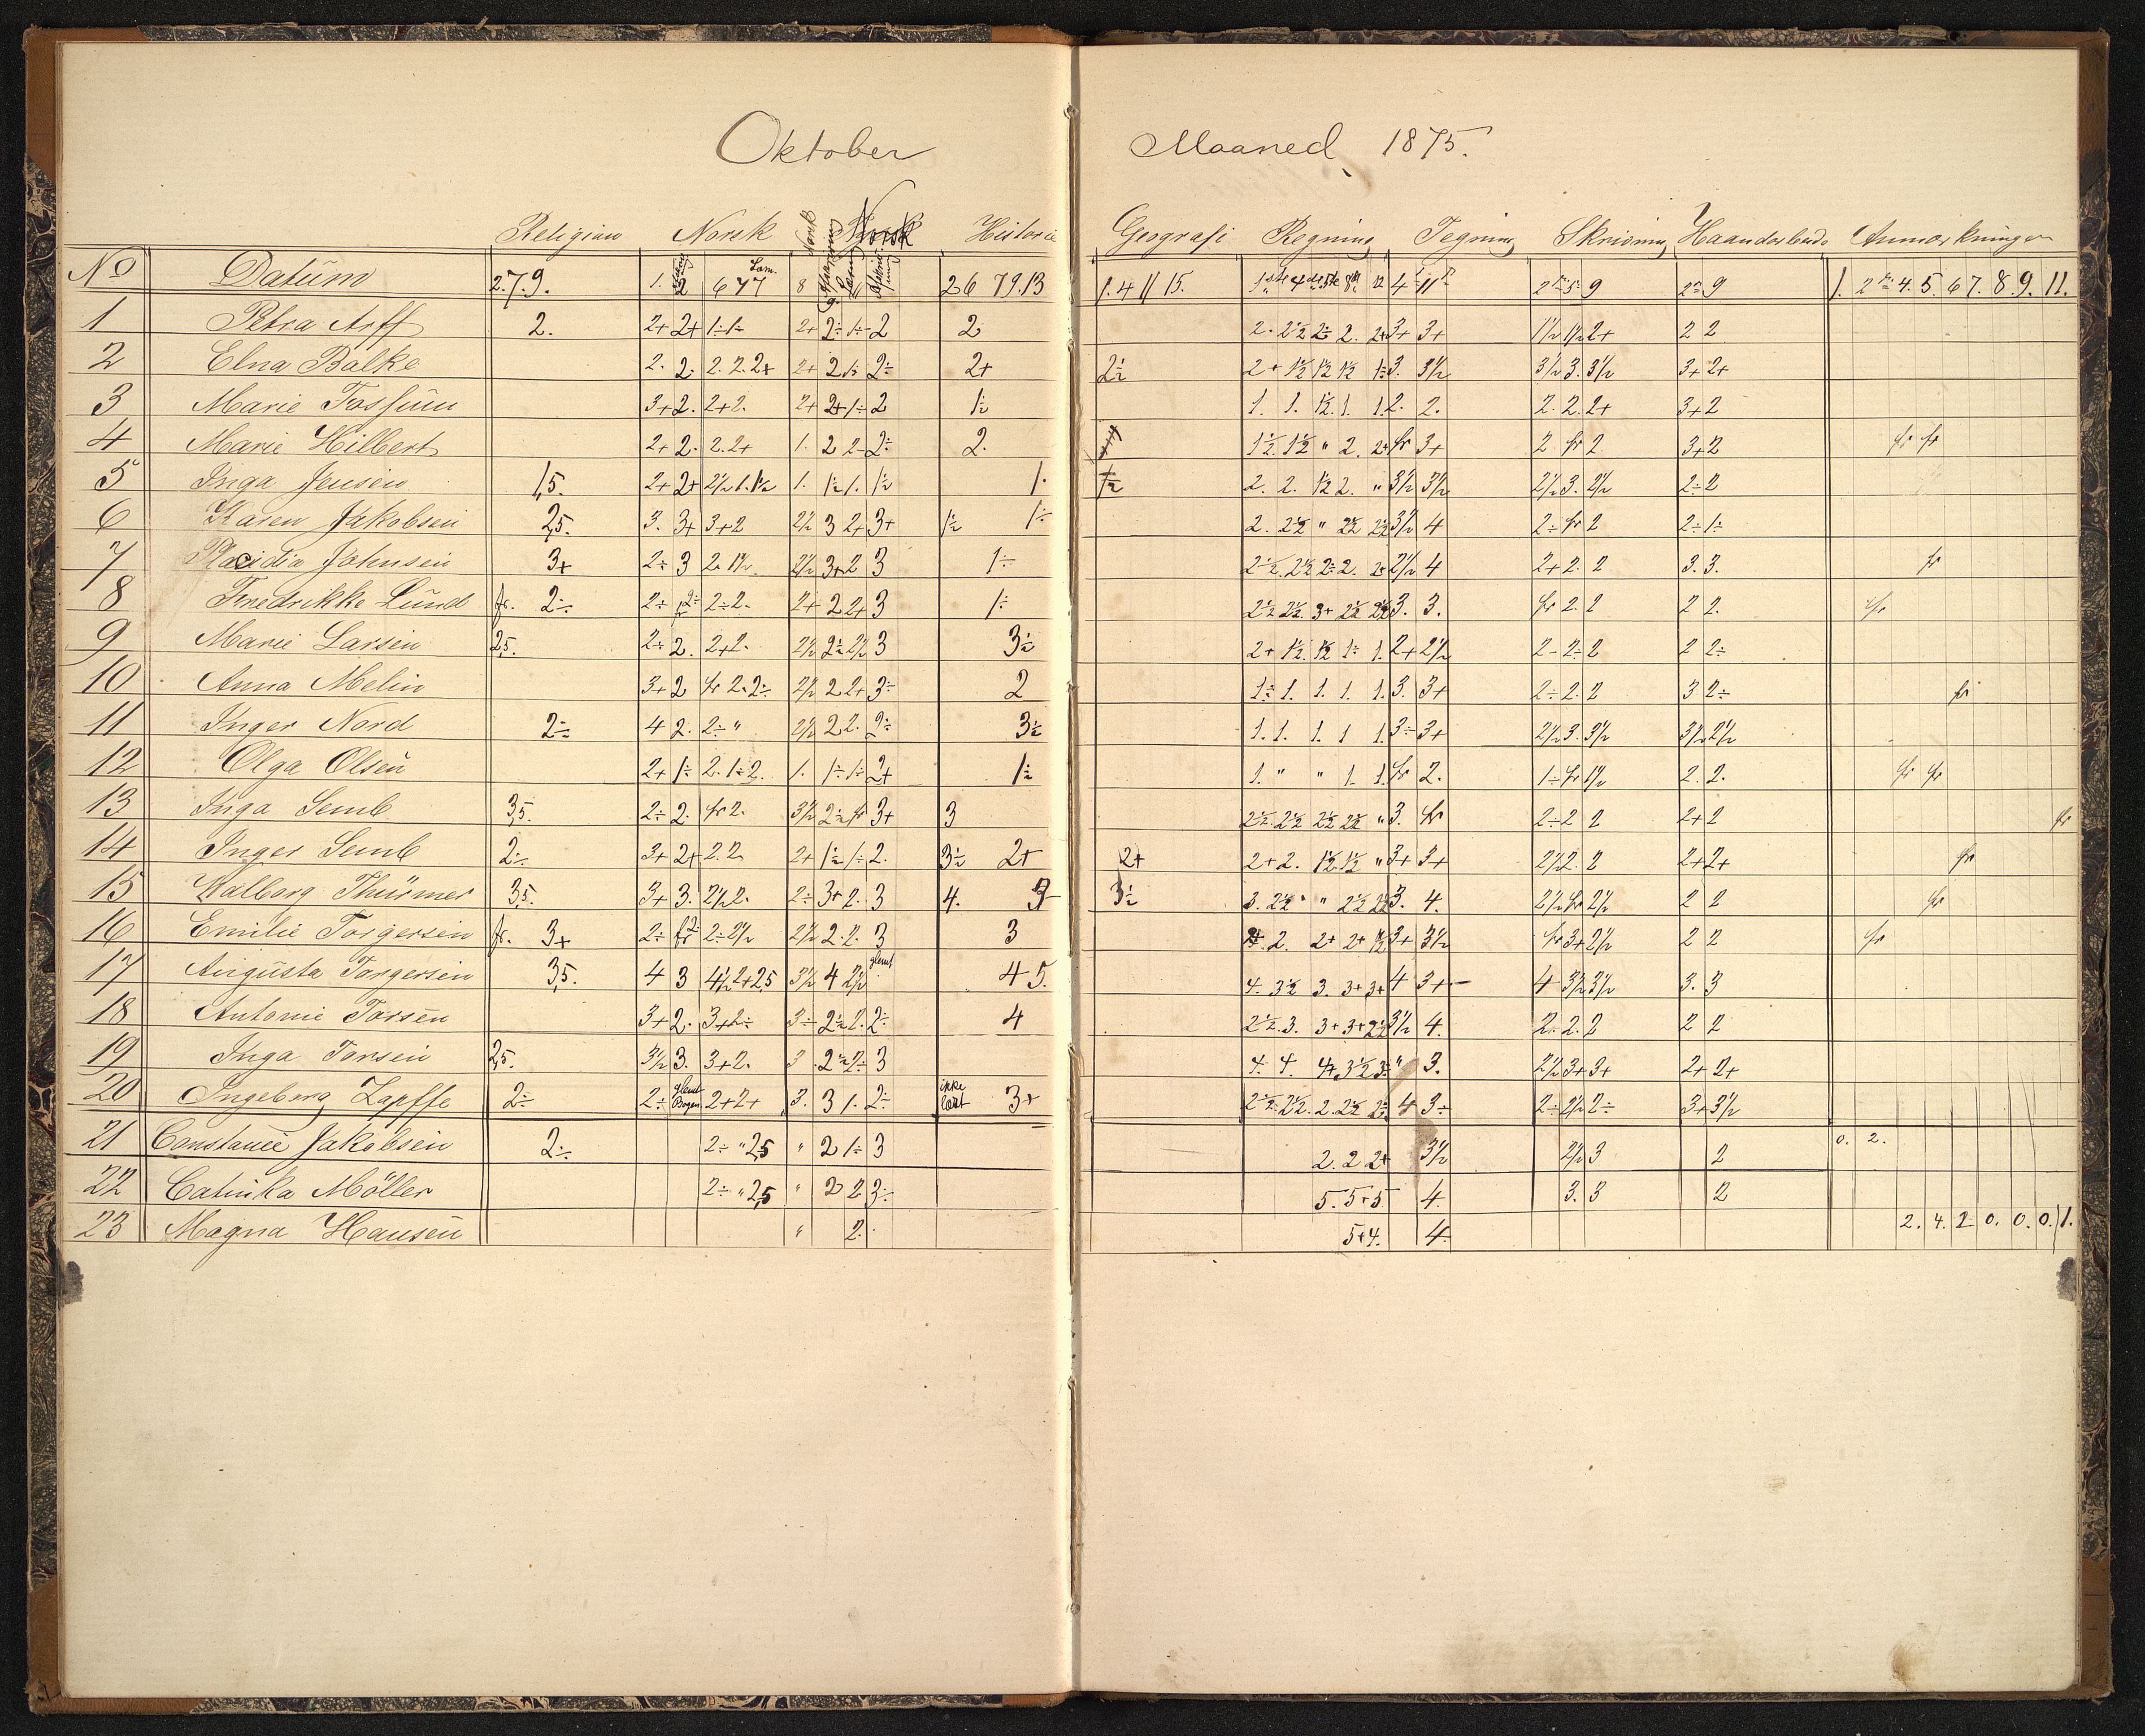 Oktober Maaned 1875.
Religion Norsk Norsk Norsk Historie Geografi Regning Tegning Skrivning Haandarbeide Anmærkninger
No Datum 2.7.9. 1. 2 6 7 7 8 2 6 7 9. 13 1. 4 11 15. 4 11 2 5 9 2 9 1. 2 4. 5. 6 7. 8. 9. 11.
1 Petra Arff 2. 2+ 2+ 1÷ 1÷ 2+ 2÷ 1÷ 2 2 3+ 3+ 1½ 1½ 2+ 2 2
2 Elna Balke 2. 2. 2. 2. 2+ 2+ 2 1÷ 2÷ 2+ 2÷ 3. 3½ 3½ 3. 3½ 3+ 2+
3 Marie Fossum 3+ 2. 2+ 2. 2+ 2+ 1÷ 2 1÷ 1. 1. 1½. 1. 1. 2. 2. 2. 2. 2+ 3+ 2
4 Marie Hilbert 2+ 2. 2. 2+ 1. 2 2 2÷ 2. fr 3+ 2 fr 2 3+ 2 fr fr
5 Inga Jensen 1,5. 2+ 2+ 2½ 1. 1½ 1. 1÷ 1. 1÷ 1. 1÷ 2. 2. 1½ 2. " 3½ 3½ 2½ 3. 2½ 2÷ 2
6 Karen Jakobsen 2,5. 3. 3+ 3+ 2 2½ 3 2+ 3+ 1÷ 1÷ 3½ 4 2÷ fr 2 2÷ 1÷
7 Placidia Johnsen 3+ 2÷ 3 2. 1½. 2½ 3+ 2 3 1÷ 2½ 4 2+ 2. 2 3. 3. fr
8 Fredrikke Lund fr. 2÷ 2÷ 2÷ 2÷ 2. 2+ 2 2+ 3 1÷ 3. 3. fr 2. 2 2 2. fr
9 Marie Larsen 2,5. 2÷ 2. 2+ 2. 2½ 2÷ 2½ 3 3÷ 2+ 2½ 2 2÷ 2 2 2÷
10 Anna Melin 3+ 2 fr 2. 2÷ 2½ 2 2+ 3÷ 2 1÷ 1. 1. 1. 1. 3. 3+ 2÷ 2. 2 3 2÷ fr
11 Inger Nord 2÷ 4 2. 2÷ " 2½ 2 2. 2÷ 3÷ 1. 1. 1. 1 1. 3÷ 3+ 2½ 3. 3½ 3½ 2½
12 Olga Olsen 2+ 1÷ 2. 1÷ 2. 1. 1÷ 1÷ 2+ 1÷ 1. " " 1. 1. fr 2. 1÷ fr 1½ 2. 2. fr fr
13 Inga Semb 3,5. 2÷ 2. fr 2. 3½ 2÷ fr 3+ 3 3. fr 2÷ 2 2 2+ 2 fr
14 Inger Semb 2÷ 3+ 2+ 2. 2 2+ 1÷ 1÷ 2. 3÷ 2+ 2+ 2+ 2. 1½ 1½ " 3+ 3+ 2½ 2. 2 2+ 2+ fr
15 Valborg Thürmer 3,5. 3+ 3. 2½ 2. 2÷ 3+ 2. 3 4. 3 3÷ 3. 4. 2½ fr 2½ 2 2 fr
16 Emilie Torgersen fr. 3+ 2÷ fr 2÷ 2½ 2½ 2. 2. 3 3 3+ 3½ fr 3+ 2½ 2 2 fr
17 Augusta Torgersen 3,5. 4 3 4½ 2+ 2,5 3½ 4 2½ glemt 4 5. 4. 3½ 3. 3+ 3+ 4 3+ 4 3½ 3½ 3. 3
18 Antonie Torsen 3+ 2. 3+ 2÷ 3÷ 2÷ 2. 2÷ 4 3½ 4. 2. 2. 2 2 2
19 Inga Torsen 2,5. 3½ 3. 3+ 2. 3 2÷ 2÷ 3 " 3. 2½ 3+ 3+ 2+ 2+
20 Ingeborg Zapffe 2÷ 2÷ glemt Bogen 2+ 2+ 3. 3 1. 2÷ ikke læst 3+ 4 3÷ 2÷ 2½ 2÷ 3+ 3½
21 Constance Jakobsen 2÷ 2÷ " 2,5 " 2 1÷ 3 2. 2 2+ 3½ 2½ 3 2 0. 2.
22 Cathinka Möller 2÷ " 2,5 " 2 2 3÷ 5. 5+ 5 4. 3. 3 2
23 Magna Hansen " 2. 5+ 4. 4. 2. 4. 2 0. 0. 0. 1.